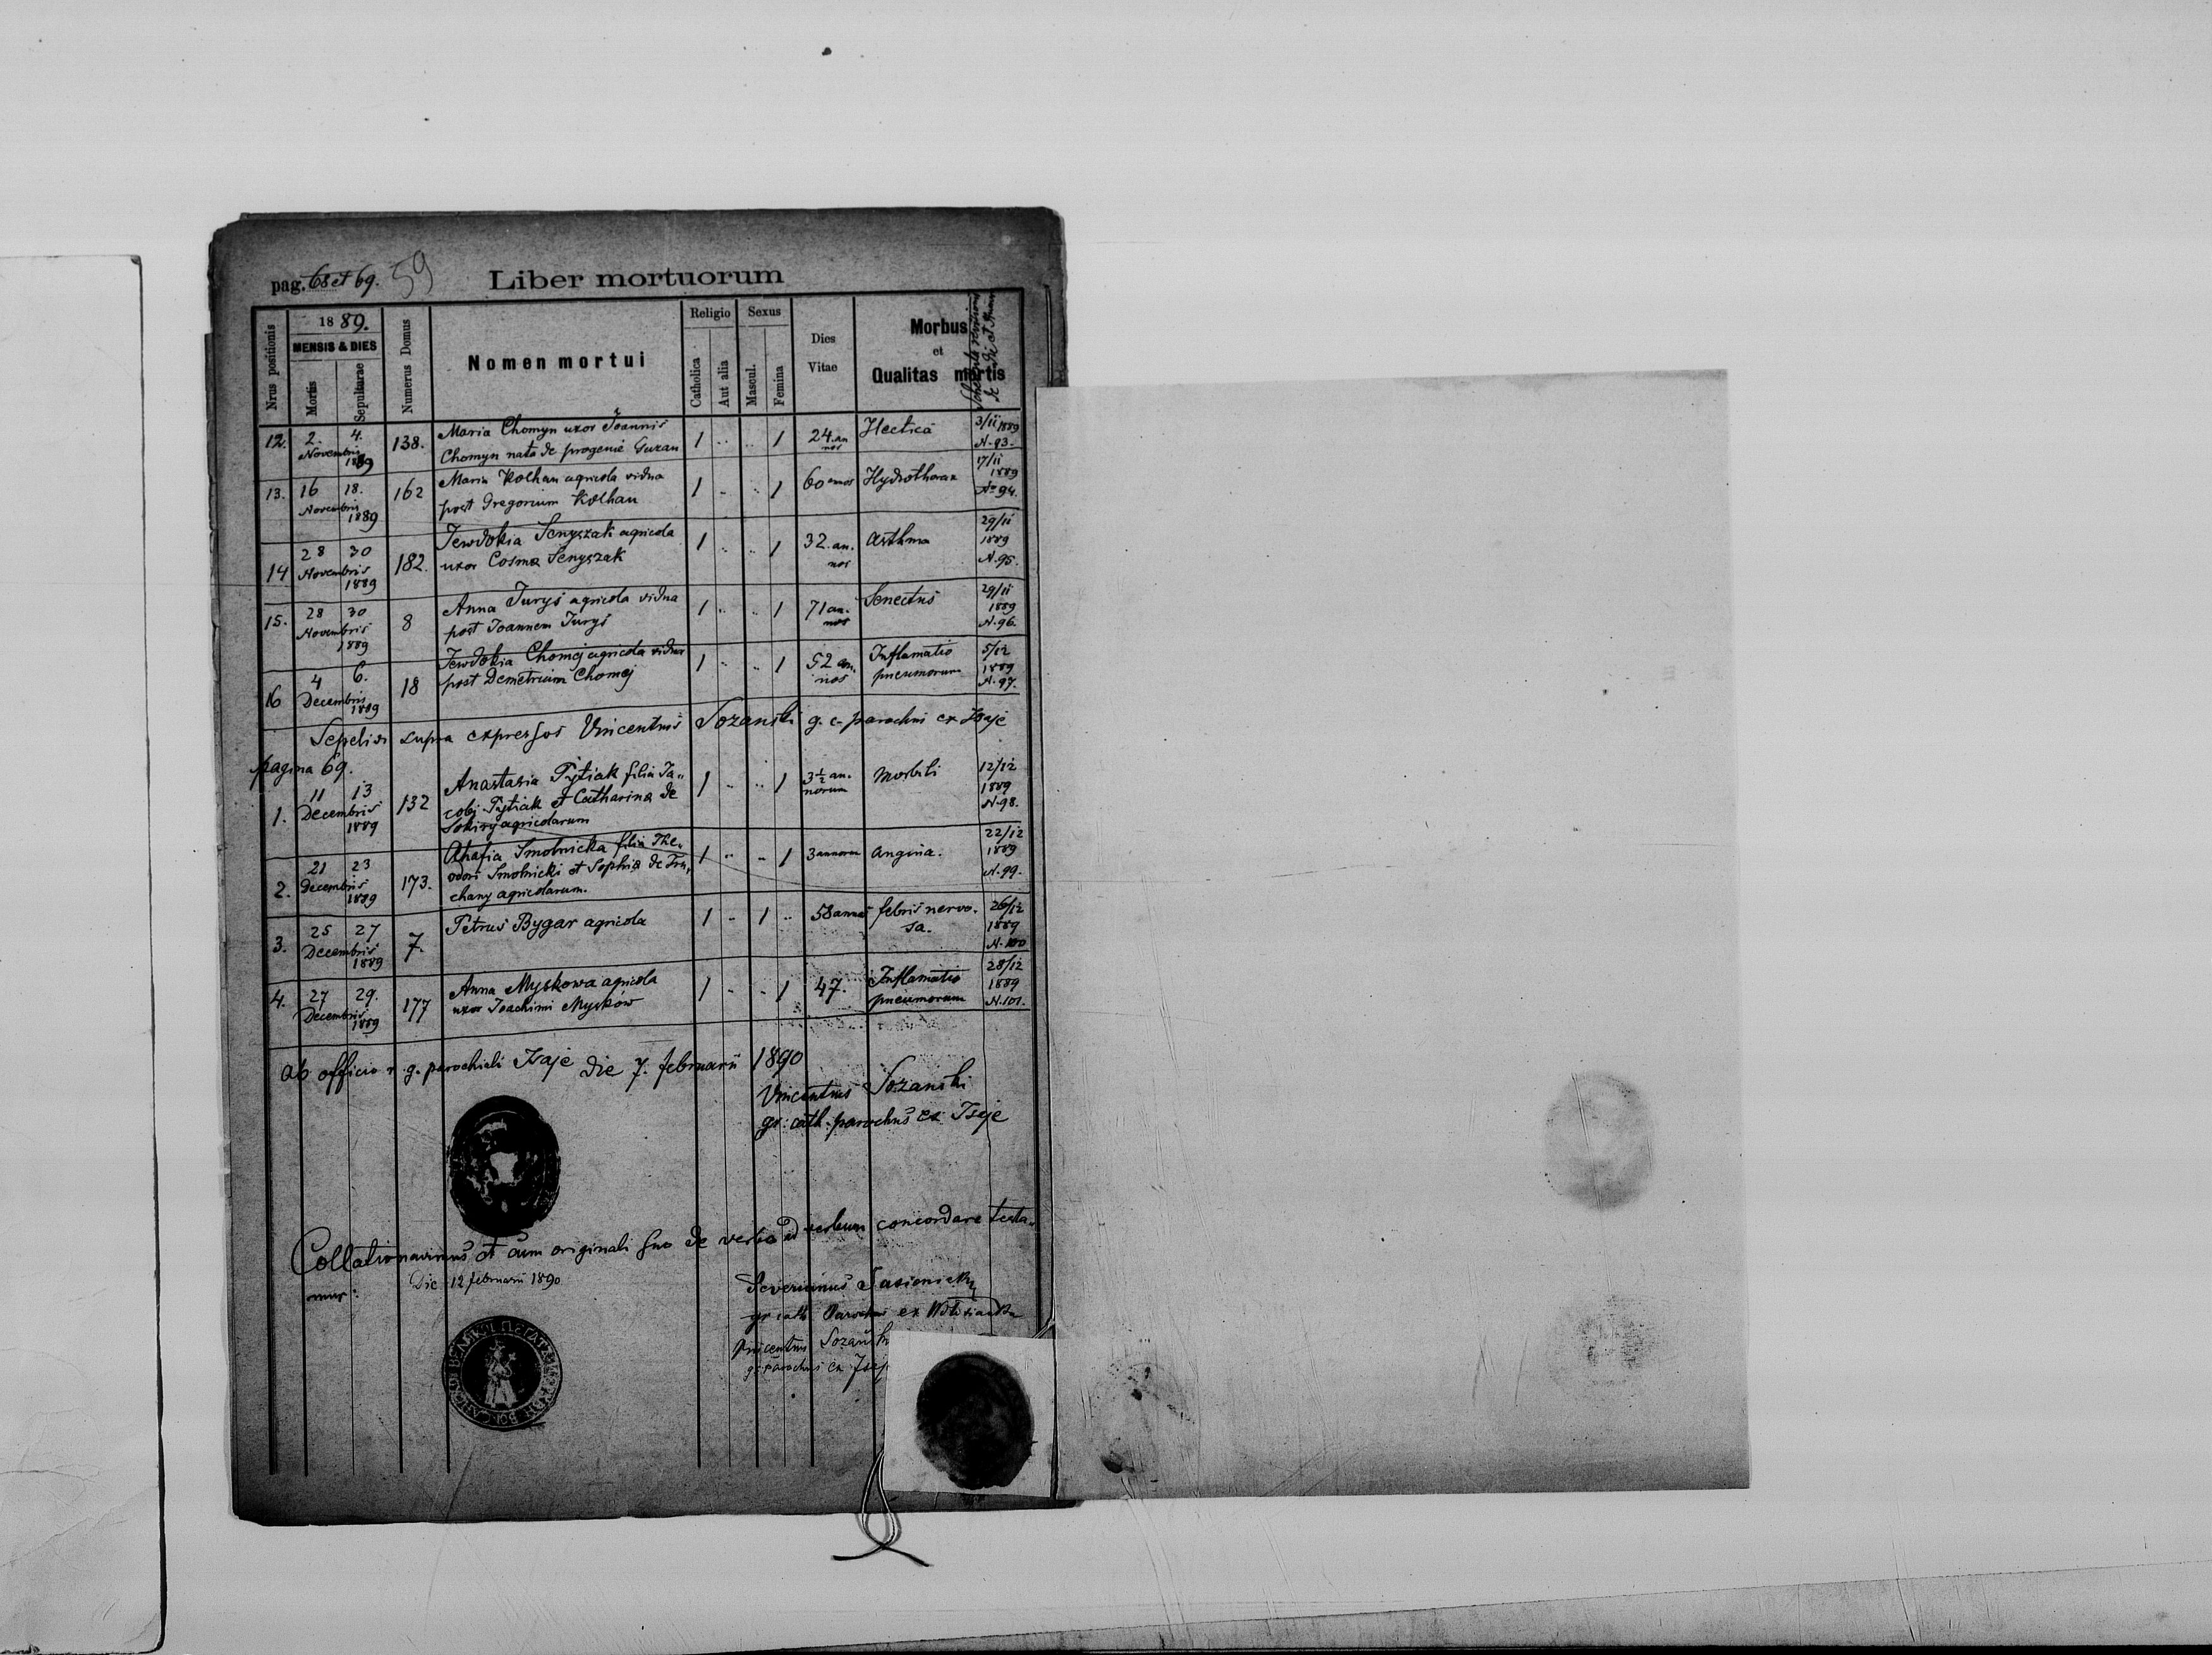 pag. 68 et 69. 59 Liber mortuorum
Nrus positionis
1889.
MENSIS & DIES
Mortis
Sepulturae
Numerus Domus
Nomen mortui
Religio
Catholica
Aut alia
Sexus
Mascul.
Femina
Dies
Vitae
Morbus
et
Qualitas mortis
12. 2. 4. Novembris 1889 138. Maria Chomyn uxor Joannis 1 .. .. 1 24. an Hectica 3/11 1889
Chomyn nata de progenie Guzan nos N. 93.
13. 16 18. Novembris 1889 162 Maria Kolhan agricola vidua 1 .. .. 1 60 annos Hydrothorax 17/11 1889
post Gregorium Kolhan No 94.
14 28 30 Novembris 1889 182. Jewdokia Senyszak agricola 1 .. .. 1 32. an. Asthma 29/11 1889
uxor Cosmae Senyszak nos N. 95.
15. 28 30 Novembris 1889 8 Anna Jurys agricola vidua 1 .. .. 1 71 an. Senectus 29/11 1889
post Joannem Jurys nos N. 96.
16 4 6. Decembris 1889 18 Jewdokia Chomej agricola vidua 1 .. .. 1 52 an. Inflamatio 5/12 1889
post Demetrium Chomej nos pneumorum N. 97.
Sepelivi supra expressos Vincentius Sozanski g. c. parochus ex Isaje
pagina 69.
1. 11 13 Decembris 1889 132 Anastasia Pytiak filia Ja„ 1 .. .. 1 3½ an. Morbili 12/12 1889
cobi Pytiak et Catharina de norum N. 98.
Sokiry agricolarum
2. 21 23 Decembris 1889 173. Ahafia Smolnicka filia The„ 1 .. .. 1 3 annorum angina. 22/12 1889
odori Smolnicki et Sophia de Tru„ N. 99.
chany agricolarum.
3. 25 27 Decembris 1889 7. Petrus Bygar agricola 1 .. 1 .. 58 annos febris nervo. 26/12 1889
sa. N. 100
4. 27 29. Decembris 1889 177 Anna Myskowa agricola 1 .. .. 1 47. Inflamatio 28/12 1889
uxor Joachimi Myśków pneumorum N. 101.
Ab officio r. g. parochiali Isaje die 7. februarii 1890
Vincentius Sozanski
gr. cath. parochus ex Isaje
Collationavimus et cum originali suo de verbo ad verbum concordare testa„
mur:
Die 12 februarii 1890
Severinus Jasienicki
gr cath Parochus ex
Vincentius Sozanski
g. parochus ex Isaje